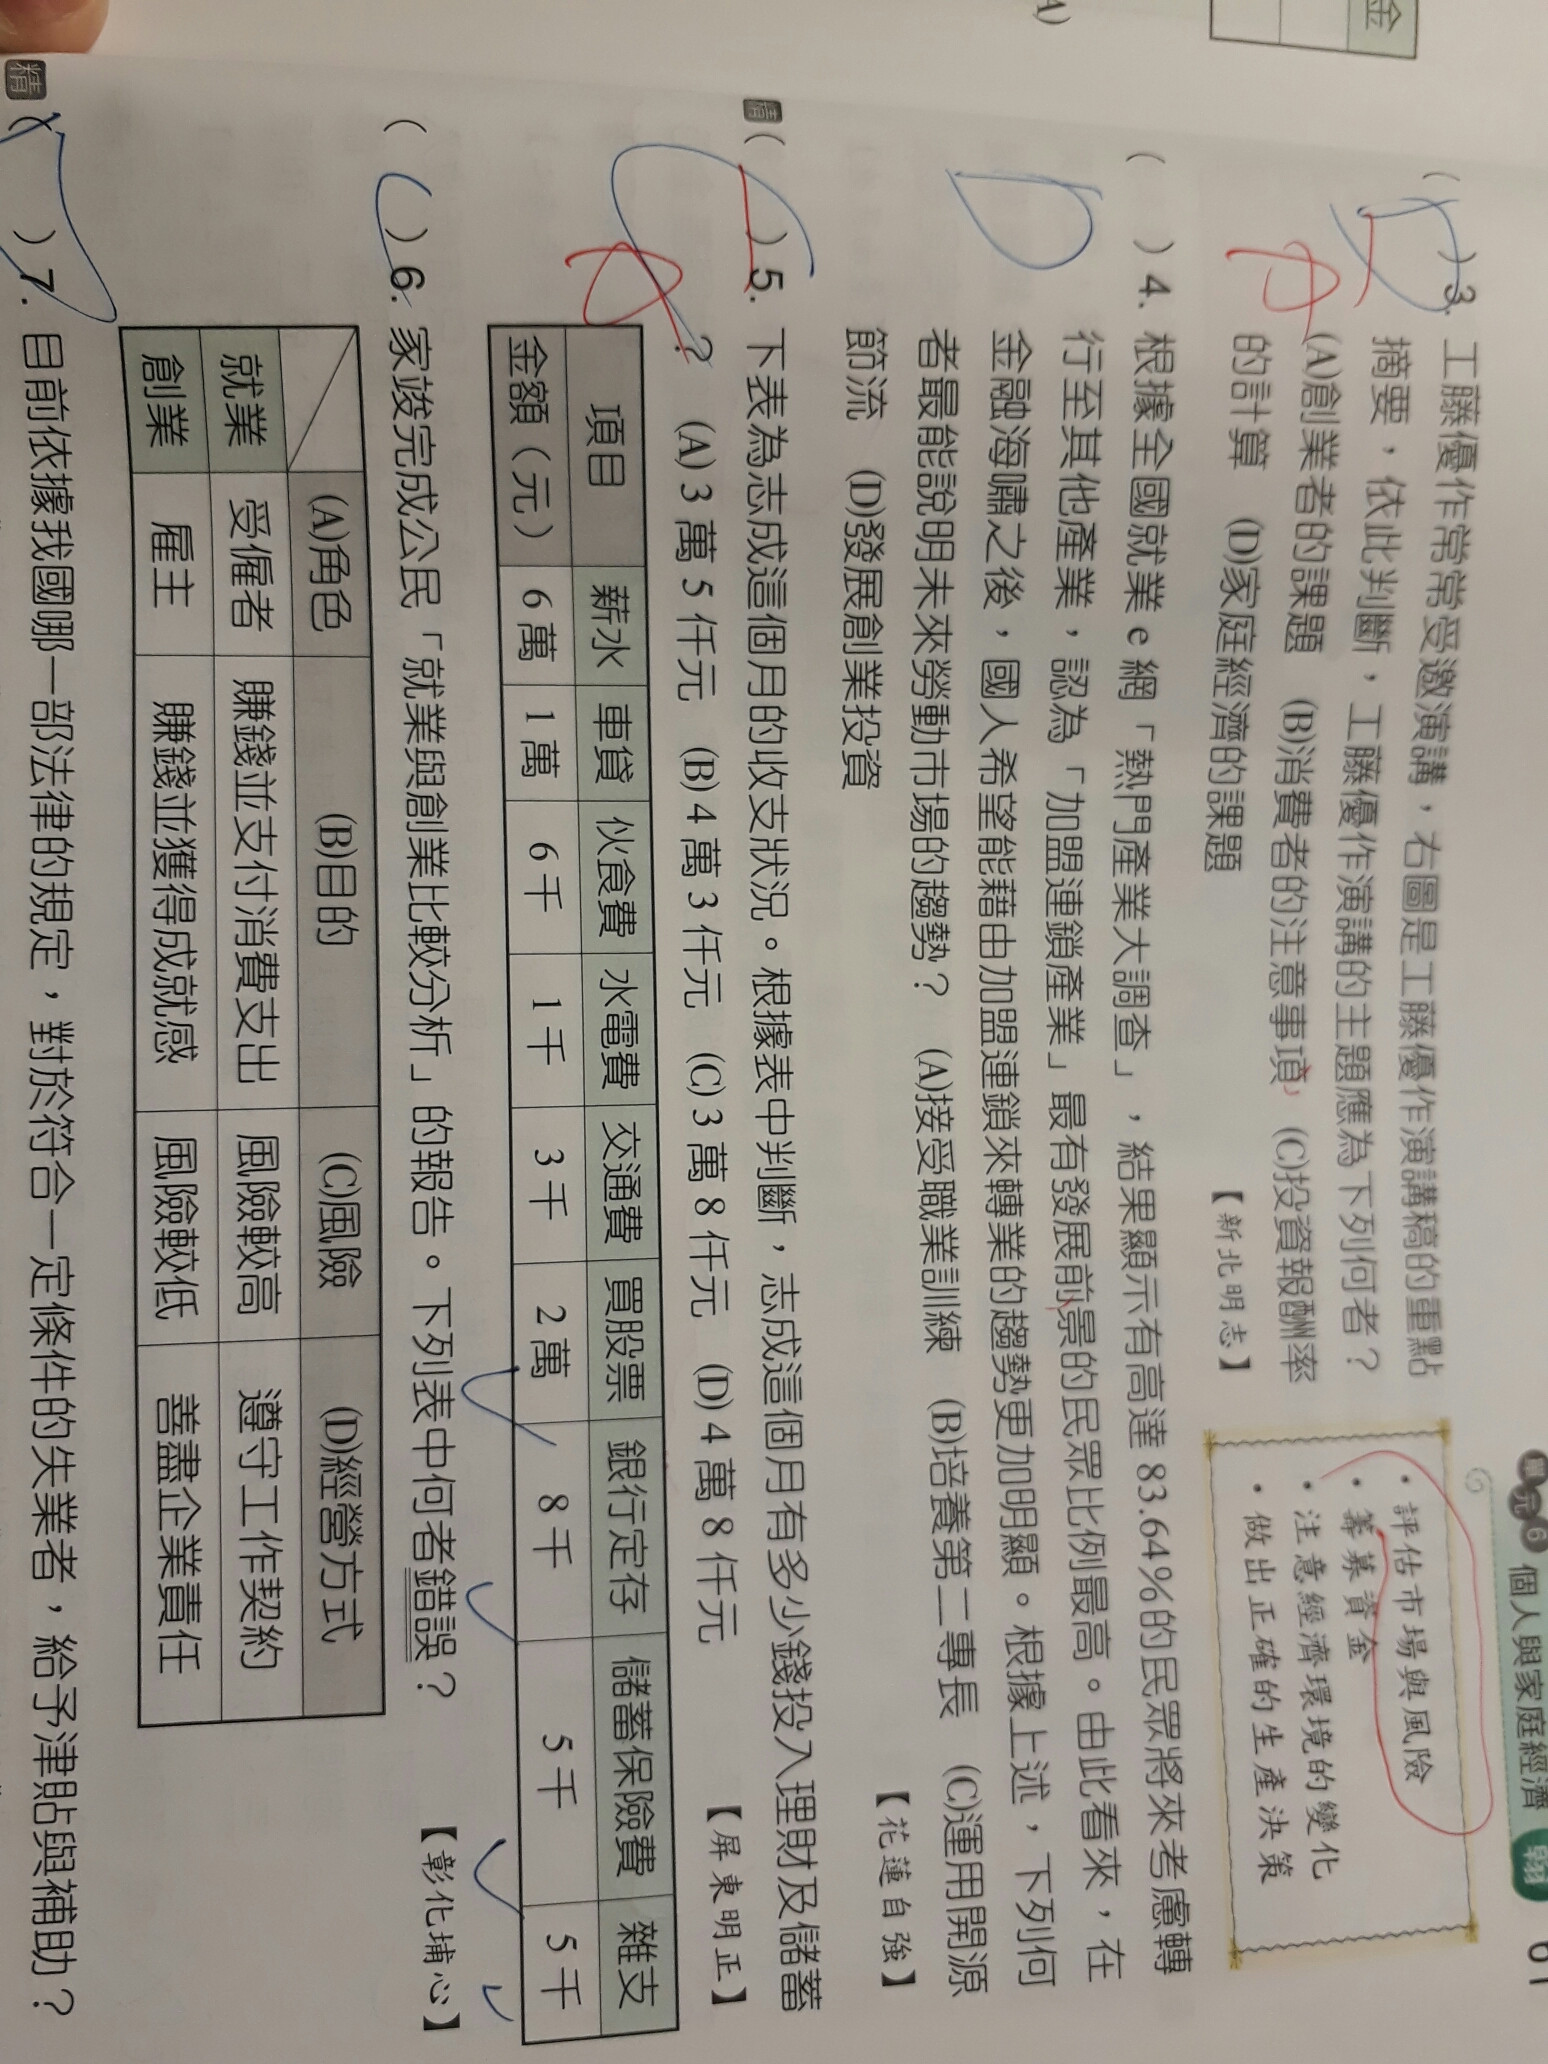 單元6 個人與家庭經濟 翰 61
金
A)
( )3. 工藤優作常常受邀演講，右圖是工藤優作演講稿的重點
摘要，依此判斷，工藤優作演講的主題應為下列何者？
(A)創業者的課題 (B)消費者的注意事項 (C)投資報酬率
的計算 (D)家庭經濟的課題 【新北明志】
A
・評估市場與風險
・籌募資金
・注意經濟環境的變化
・做出正確的生產決策
( )4. 根據全國就業e網「熱門產業大調查」，結果顯示有高達 83.64%的民眾將來考慮轉
行至其他產業，認為「加盟連鎖產業」最有發展前景的民眾比例最高。由此看來，在
金融海嘯之後，國人希望能藉由加盟連鎖來轉業的趨勢更加明顯。根據上述，下列何
者最能說明未來勞動市場的趨勢？ (A)接受職業訓練 (B)培養第二專長 (C)運用開源
節流 (D)發展創業投資 【花蓮自強】
D
精( )5. 下表為志成這個月的收支狀況。根據表中判斷，志成這個月有多少錢投入理財及儲蓄
？ (A) 3 萬 5 仟元 (B) 4 萬 3 仟元 (C) 3 萬 8 仟元 (D) 4 萬 8 仟元 【屏東明正】
C
項目 薪水 車貸 伙食費 水電費 交通費 買股票 銀行定存 儲蓄保險費 雜支
金額（元） 6 萬 1 萬 6 千 1 千 3 千 2 萬 8 千 5 千 5 千
( )6. 家竣完成公民「就業與創業比較分析」的報告。下列表中何者錯誤？ 【彰化埔心】
C
(A)角色 (B)目的 (C)風險 (D)經營方式
就業 受僱者 賺錢並支付消費支出 風險較高 遵守工作契約
創業 雇主 賺錢並獲得成就感 風險較低 善盡企業責任
精( )7. 目前依據我國哪一部法律的規定，對於符合一定條件的失業者，給予津貼與補助？